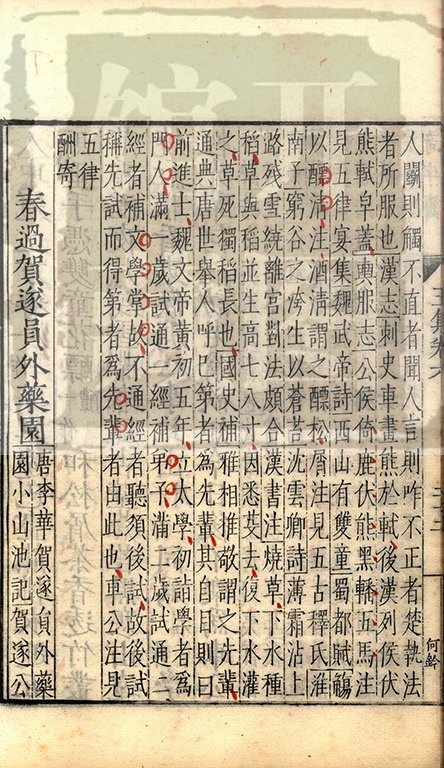 人關則觸不直者聞人言則咋不正者楚執法
者所服也漢志刺史車畫熊於軾後漢列侯伏
熊軾皁蓋輿服志公侯倚鹿伏熊黑轓五馬注
見五律宴集魏武帝詩西山有雙童蜀都賦觴
以醥清注酒清謂之醥松屑注見五古釋氏淮
南子窮谷之洿生以蒼苔沈雲卿詩薄霜沾上
路殘雪繞離宮對法頗合漢書注燒草下水種
稻草與稻並生高七八寸因悉芟去後下水灌
之草死獨稻長也國史補雅相推敬謂之先輩
通典唐世舉人呼巳第者為先輩其自目則曰
前進士魏文帝黃初五年立太學初詣學者爲
門人滿一歲試通一經補弟子不滿二歲試通二
經者補文學掌故不通經者聽須後試故後試
稱先試而得第者爲先輩者由此也車公注見
五律
酬寄
春過賀遂員外藥園
唐李華賀遂員外藥
園小山池記賀遂公
何鈴